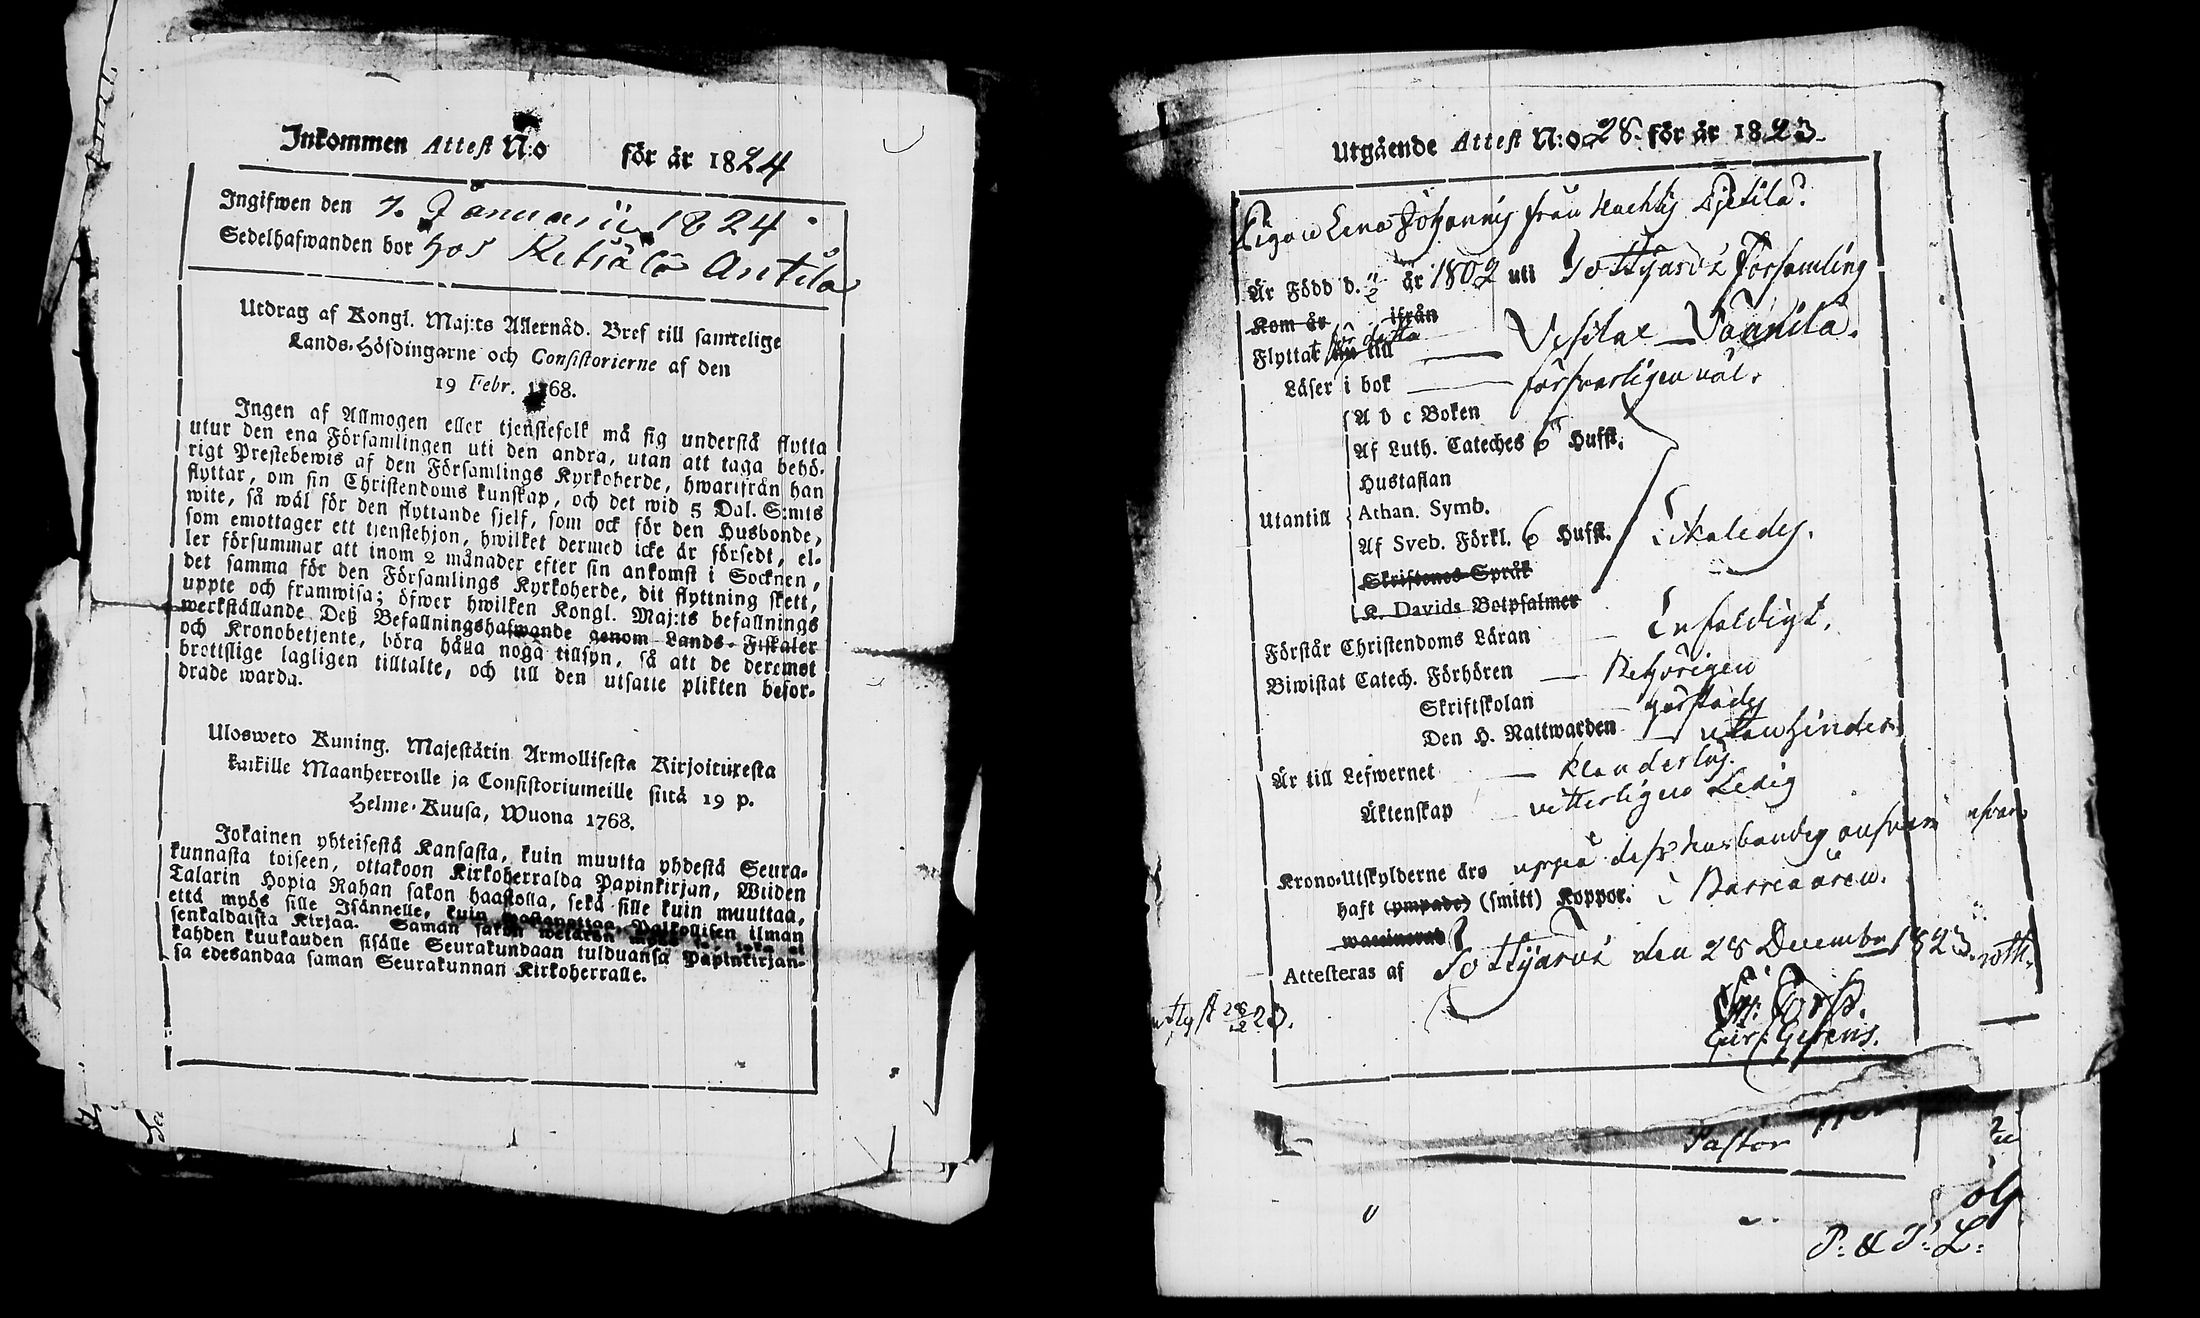 Inkommen Attest N:o för år 1824
Ingifwen den 7. Januarii 1824.
Sedelhafwanden bor hos Ketiälä Antila
Utdrag af Kongl. Maj:ts Allernåd. Bref till samtelige
Lands-Höfdingarne och Consistorierne af den
19 Febr. 1768.
Ingen af Allmogen eller tjenstefolk må sig understå flytta
utur den ena Församlingen uti den andra, utan att taga behö-
rigt Prestebewis af den Församlings Kyrkoherde, hwarifrån han
flyttar, om sin Christendoms kunskap, och det wid 5 Dal. S:mts
wite, så wäl för den flyttande sjelf, som ock för den Husbonde,
som emottager ett tjenstehjon, hwilket dermed icke är försedt, el-
ler försummar att inom 2 månader efter sin ankomst i Socknen,
det samma för den Församlings Kyrkoherde, dit flyttning skett,
uppte och framwisa; öfwer hwilken Kongl. Maj:ts befallnings
werkställande Deß Befallningshafwande genom Lands-Fiskaler
och Kronobetjente, böra hålla noga tillsyn, så att de deremot
brottslige lagligen tilltalte, och till den utsatte plikten befor-
drade warda.
Ulosweto Kuning. Majestätin Armollisesta Kirjoituxesta
kaikille Maanherroille ja Consistoriumeille siitä 19 p.
Helme-Kuusa, Wuona 1768.
Jokainen yhteisestä Kansasta, kuin muutta yhdestä Seura-
kunnasta toiseen, ottakoon Kirkoherralda Papinkirjan, Wiiden
Talarin Hopia Rahan sakon haastolla, sekä sille kuin muuttaa,
että myös sille Isännelle, kuin wastanottaa Palkollisen ilman
senkaldaista Kirjaa. Saman sakon wetäkön myös se, joka ei
kahden kuukauden sisälle Seurakundaan tulduansa Papinkirjan-
sa edesandaa saman Seurakunnan Kirkoherralle.
Utgående Attest N:o 28. för år 1823.
Pigan Lena Johannis från Djetila?
Är Född d. år 1802 uti Församling
Kom år ifrån
Flyttat nu till
Läser i bok försvarligen väl.
A b c Boken
Af Luth. Cateches 6 Hufst.
Hustaflan
Utantill Athan. Symb.
Af Sveb. Förkl. 6 Hufst. Likaledes.
Skriftenes Språk
K. Davids Botpsalmer
Förstår Christendoms Läran Enfaldigt.
Biwistat Catech. Förhören Behörigen
Skriftskolan
Den H. Nattwarden utan hinder
Är till Lefwernet klanderlös.
Äktenskap vitterligen Ledig
Krono-Utskylderne äro uppå dess husbondes ansvar
haft (ympade) (smitt) Koppor. i Barnaåren.
waccinerat
Attesteras af den 28 December 1823.
Pastor
P. & P. L: